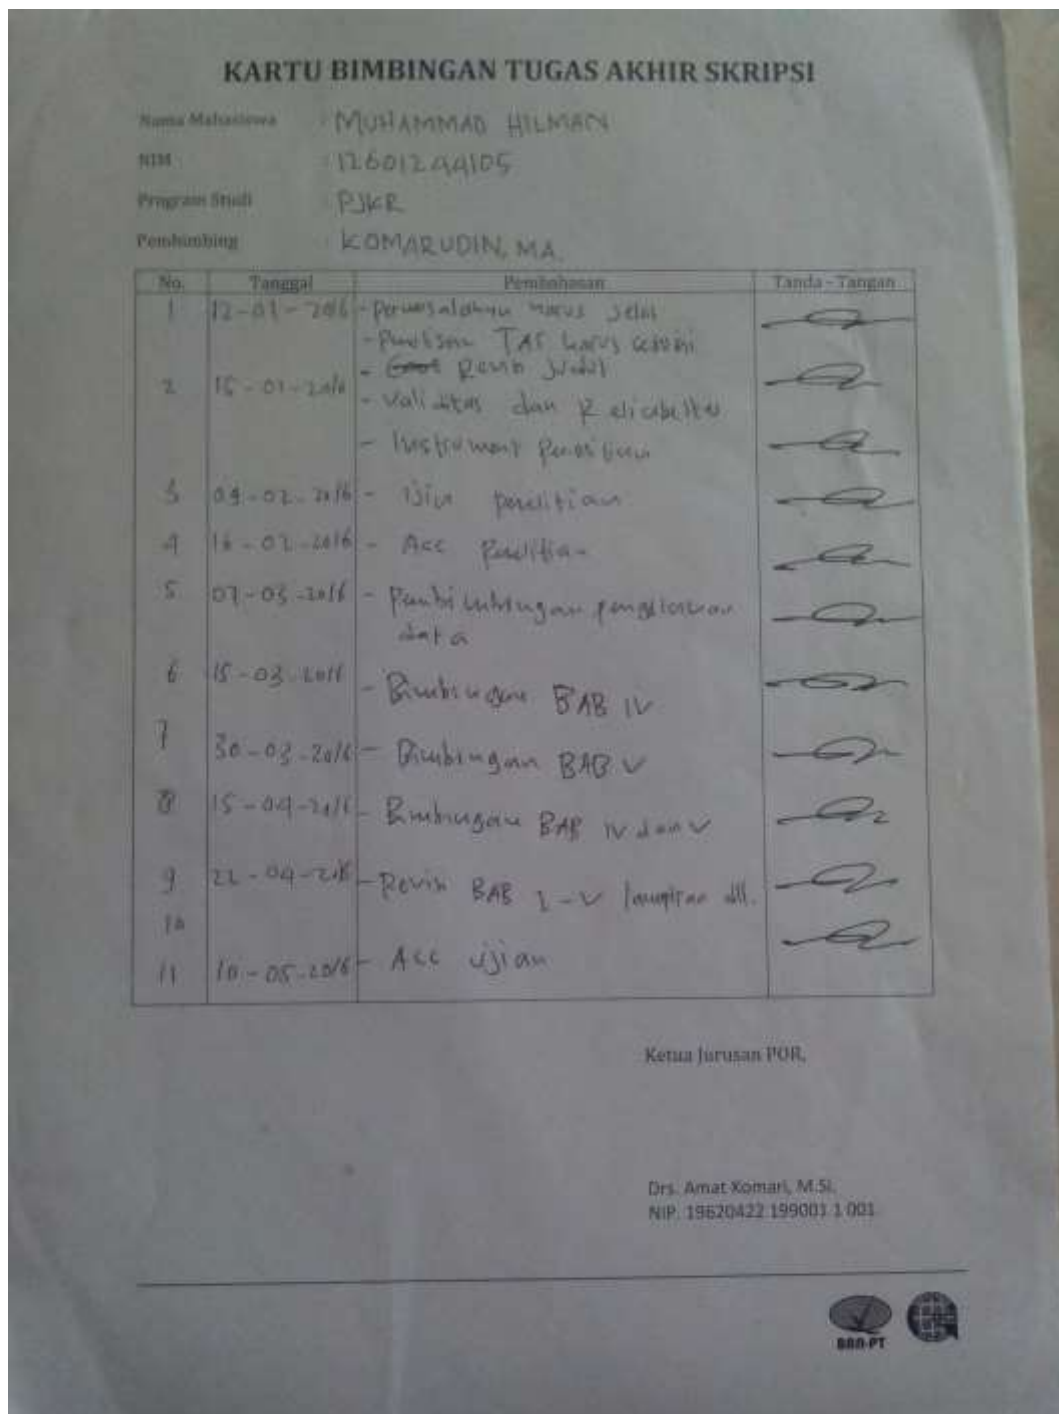 KARTU BIMBINGAN TUGAS AKHIR SKRIPSI
Nama Mahasiswa : MUHAMMAD HILMAN
NIM : 12601244105
Program Studi : PJKR
Pembimbing : KOMARUDIN, MA.
No. Tanggal Pembahasan Tanda - Tangan
1 12-01-2016 - permasalahan harus jelas
- Penulisan TAS harus sesuai
- Revisi Judul
2 15-01-2016 - Validitas dan Reliabelitas
- Instrument Penelitian
3 04-02-2016 - Ijin penelitian
4 16-02-2016 - Acc Penelitian
5 07-03-2016 - Pembimbingan pengolahan
data
6 15-03-2016 - Bimbingan BAB IV
7 30-03-2016 - Bimbingan BAB V
8 15-04-2016 - Bimbingan BAB IV dan V
9 22-04-2016 - Revisi BAB I-V lampiran dll.
10
11 10-05-2016 - Acc ujian
Ketua Jurusan POR,
Drs. Amat Komari, M.Si.
NIP. 19620422 199001 1 001
BAN-PT